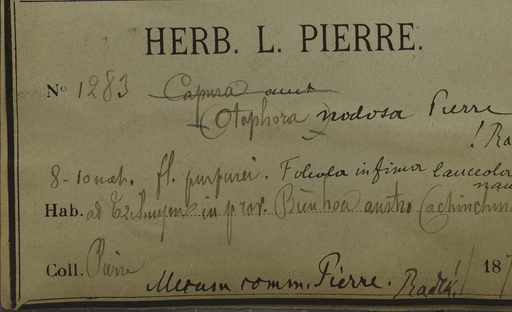 HERB. L. PIERRE.
No 1283 Capura
(Otophora) nodosa Pierre
! Ra
8-10 fl. purpurei. Foliola infima lanceola
Hab. ad in prov. Bien hoa austro Cochinchin
Coll. Pierre 18
Mecum comm. Pierre. Radlk.!